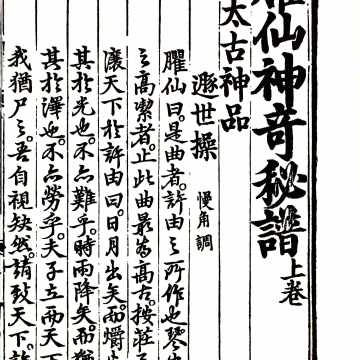 臞仙神奇秘譜上卷
太古神品
遯世操 慢角調
臞仙曰。是曲者。許由之所作也。琴
之高潔者。止此曲最為高古。按莊
讓天下於許由曰。日月出矣。而爝
其於光也。不亦難乎。時雨降矣。而猶
其於澤也。不亦勞乎。夫子立而天下
我猶尸之。吾自視缺然。請致天下。許